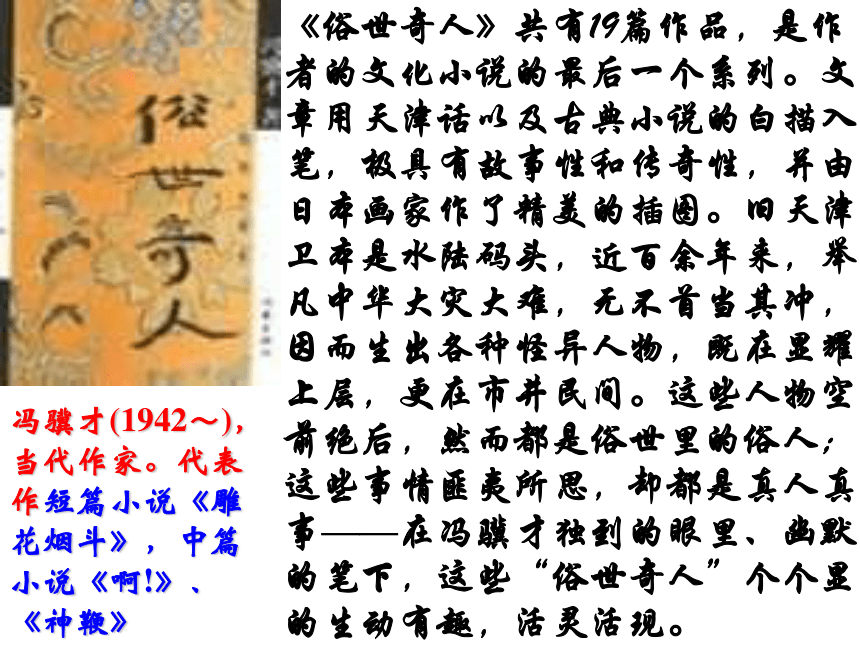 俗世奇人
《俗世奇人》共有19篇作品，是作
者的文化小说的最后一个系列。文
章用天津话以及古典小说的白描入
笔，极具有故事性和传奇性，并由
日本画家作了精美的插图。旧天津
卫本是水陆码头，近百余年来，举
凡中华大灾大难，无不首当其冲，
因而生出各种怪异人物，既在显耀
上层，更在市井民间。这些人物空
前绝后，然而都是俗世里的俗人；
这些事情匪夷所思，却都是真人真
事——在冯骥才独到的眼里、幽默
的笔下，这些“俗世奇人”个个显
的生动有趣，活灵活现。
冯骥才(1942～)，
当代作家。代表
作短篇小说《雕
花烟斗》，中篇
小说《啊!》、
《神鞭》